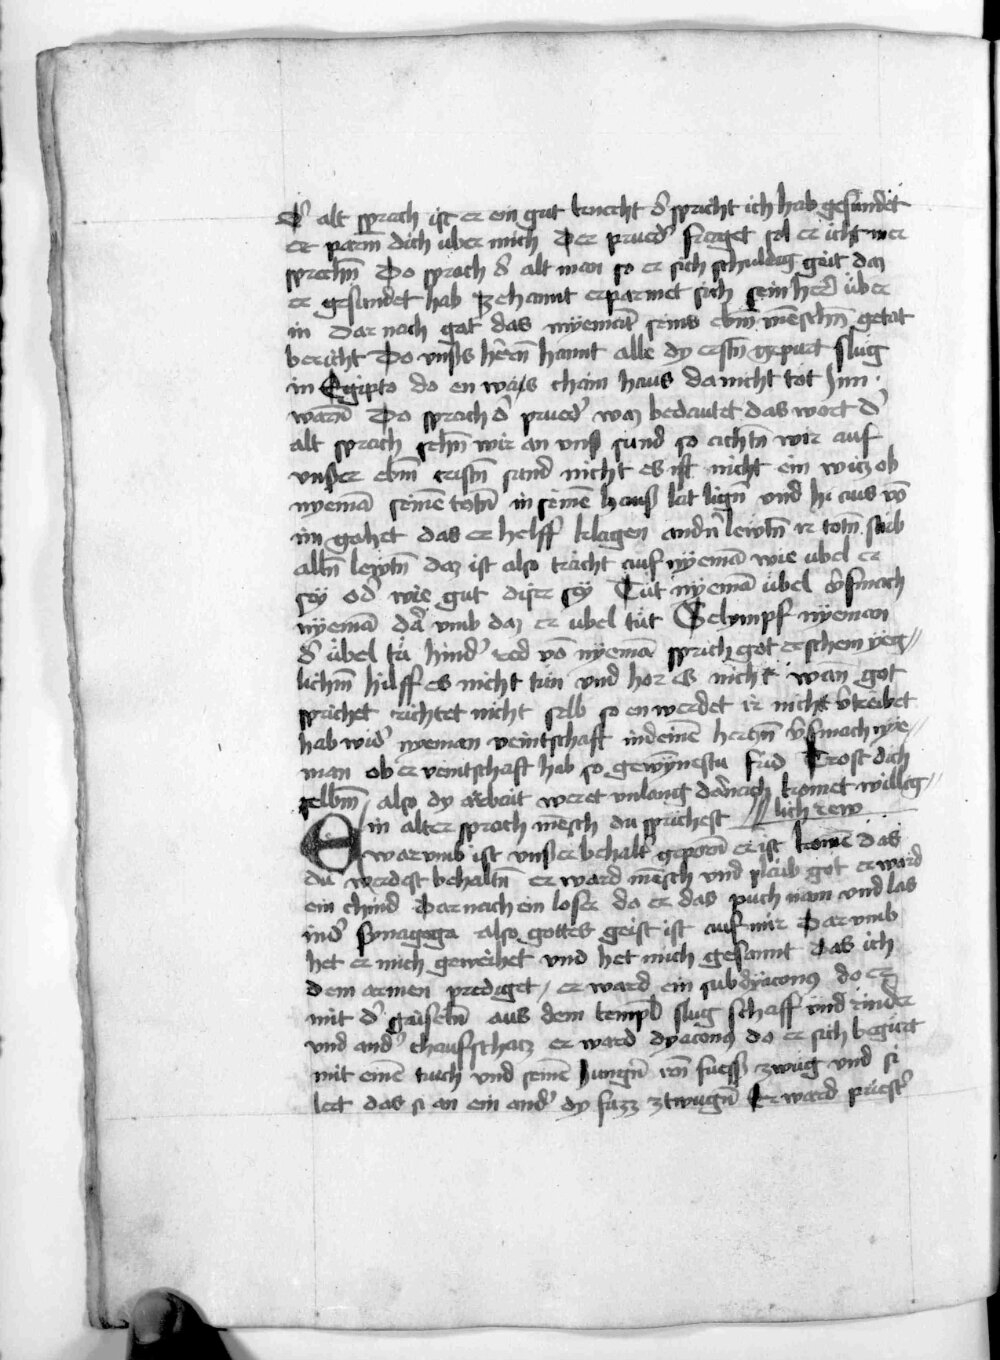 d' alt sprach ist er ein gut knecht d' spricht ich hab gesundet
er parm dich uber mich Der prued' fraget sol er icht mer
sprechn Do sprach d' alt man so er sich schuldig geit daz
er gesundet hab zehannt erparmet sich sein herr über
in Dar nach gat das nyemant seins ebm menschn getat
bericht Do unsers herrn hannt alle dy erstn gepurt slug
in Egipto do en was chain haus da nicht tot Inn
warn Do sprach d' prued' waz bedeutet das wort d'
alt sprach sehn wir an unß sund so achtn wir auf
unßer ebm cristn sund nicht es ist nicht ein witz ob
nyemā seinē totn in seinē hauß lat lign und hi aus vō
im gohet das er helff klagen andn̄ lewtn ir totn stirb
alln lewtn daz ist also tracht auf nyemā wie ubel er
sey od' wie gut diser sey Tüt nyemā übel v'smach
nyemā dar umb daz er ubel tüt Gelympf nyeman
d' übel tü hind' red vō nyemā sprich got erschem yeg//
lichm hilff es nicht tün und hor es nicht wan̄ got
sprichet richtet nicht selb so en werdet ir nicht v'treibet
hab wid' nyeman veintschaft in deinē hertzn v'smach nye//
man ob er veintschaft hab so gewynnestu frid Trost dich
selbm / also dy arbeit weret unlang darnach kromet willig//
Ein alter sprach mēsch du sprichest // lich rew
warumb ist unßer behalt' geporn er ist komē das
du werdest behaltn er ward mēsch und pleib got er ward
ein chind Darnach ein loser do er das puch nam und las
in d' synagoga also gottes geist ist auf mir Darumb
het er mich geweihet und het mich gesannt das ich
dem armen prediget / er ward ein subdyaconꝰ do er
mit d' gaiseln aus dem tempel slug schaff und rinder
und and' chaufschatz er ward dyaconꝰ do er sich begürt
mit einē tuch und seinen Jungn̄ ren fuess zwug und si
lert das si an ein and' dy fuzz ztwugn̄ Er ward priest'